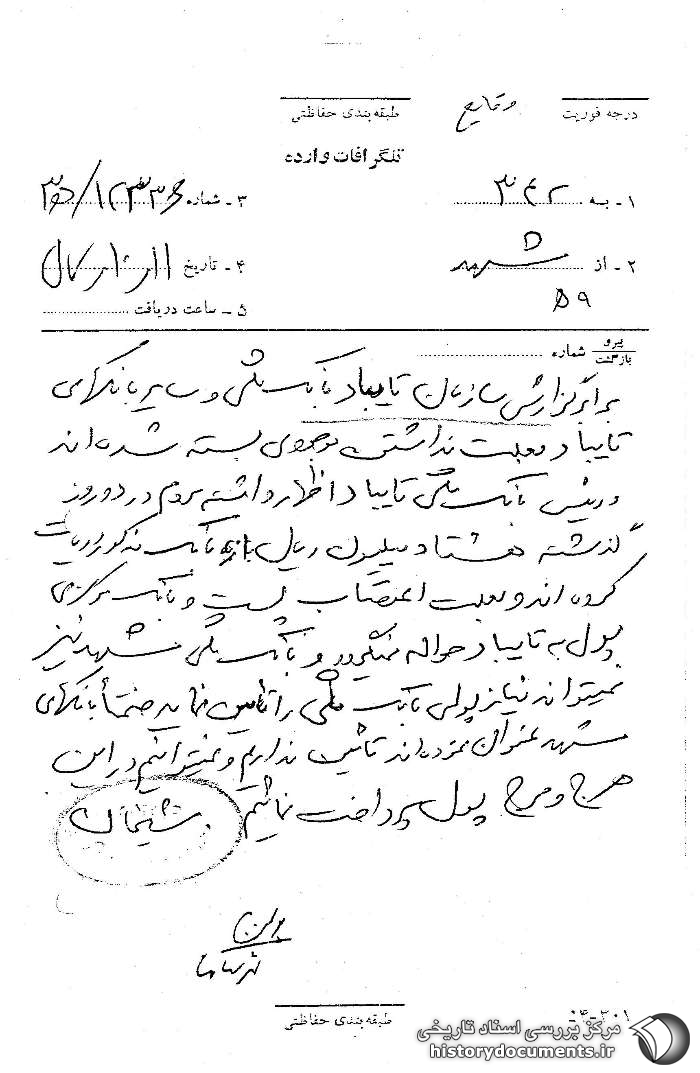 درجه فوریت
وقایع
طبقه‌بندی حفاظتی
تلگرافات وارده
۱ - به ۳۴۲
۳ - شماره
۲ - از مشهد
۴ - تاریخ
۵۹
۵ - ساعت دریافت
پیرو
بازگشت
شماره
برابر گزارش سازمان تایباد بانک ملی و سایر بانکهای
تایباد بعلت نداشتن موجودی بسته شده اند
و رئیس بانک ملی تایباد اظهار داشته مردم در دو روز
گذشته هشتاد میلیون ریال از بانک مذکور دریافت
کرده اند و بعلت اعتصاب پست و بانک مرکزی
پول به تایباد حواله نمیگردد و بانک ملی مشهد نیز
نمیتواند نیاز پولی بانک ملی را تامین نماید ضمناً بانکهای
مشهد عنوان نموده اند تامین نداریم و نمیتوانیم در این
هرج و مرج پول پرداخت نمائیم. شیخان
طبقه‌بندی حفاظتی
۰۴-۲۰۱
مرکز بررسی اسناد تاریخی
historydocuments.ir